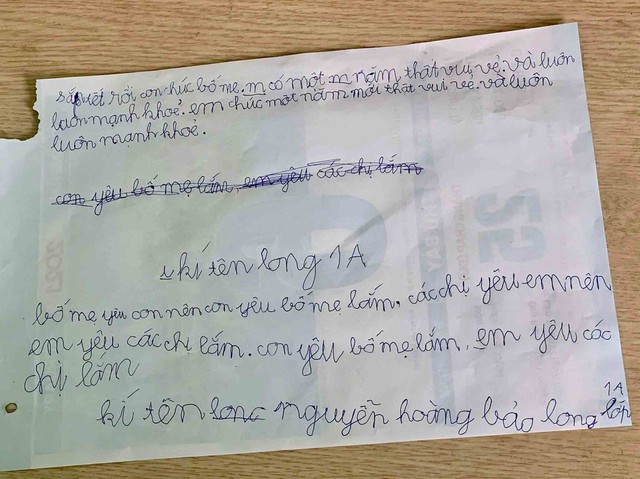 sắp tết rồi con chúc bố mẹ. m có một m năm thật vui vẻ. và luôn
luôn mạnh khoẻ. em chúc một năm mới thật vui vẻ. và luôn
luôn mạnh khoẻ.
con yêu bố mẹ lắm, em yêu các chị lắm
kí tên long 1A
bố mẹ yêu con nên con yêu bố mẹ lắm. các chị yêu em nên
em yêu các chị lắm. con yêu bố mẹ lắm, em yêu các
chị lắm
kí tên long nguyễn hoàng bảo long lớp
1A